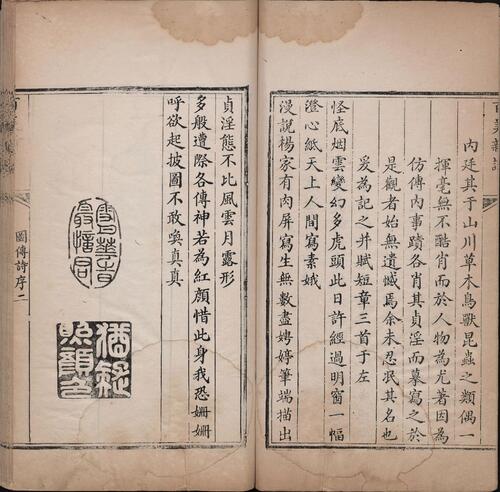 內廷其于山川草木鳥獸昆蟲之類偶一
揮毫無不酷肖而於人物為尤著因為
仿傳內事蹟各肖其貞淫而摹寫之於
是觀者始無遺憾焉余未忍泯其名也
爰為記之并賦短章三首于左
怪底烟雲變幻多虎頭此日許經過明窗一幅
澄心紙天上人間寫素娥
漫說楊家有肉屏寫生無數盡娉婷筆端描出
貞淫態不比風雲月露形
多般遭際各傳神若為紅顏惜此身我恐姍姍
呼欲起披圖不敢喚真真
猶疑照顏色
圖傳詩序二